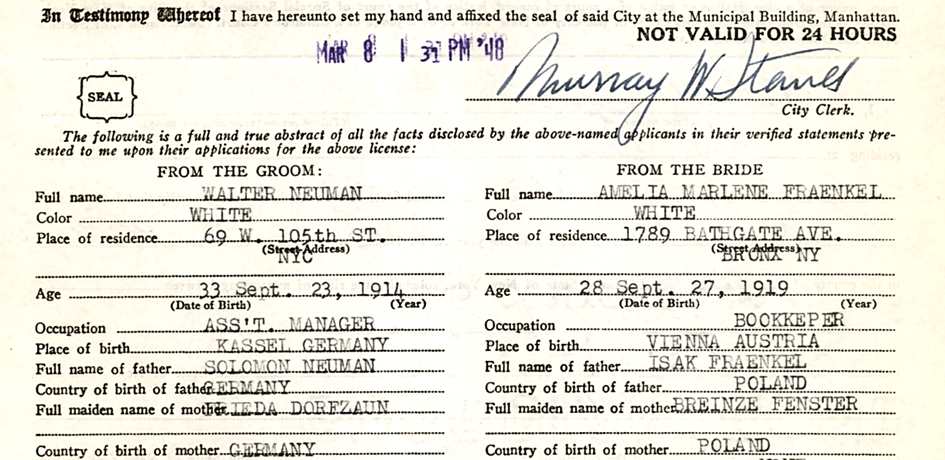 In Testimony Whereof I have hereunto set my hand and affixed the seal of said City at the Municipal Building, Manhattan.
NOT VALID FOR 24 HOURS
MAR 8 1 31 PM '48
Murray W. Stand
SEAL
City Clerk.
The following is a full and true abstract of all the facts disclosed by the above-named applicants in their verified statements pre-
sented to me upon their applications for the above license:
FROM THE GROOM:
Full name WALTER NEUMAN
Color WHITE
Place of residence 69 W. 105th ST.
(Street Address)
NYC
Age 33 Sept. 23, 1914
(Date of Birth) (Year)
Occupation ASS'T. MANAGER
Place of birth KASSEL GERMANY
Full name of father SOLOMON NEUMAN
Country of birth of father GERMANY
Full maiden name of mother FRIEDA DORFZAUN
Country of birth of mother GERMANY
FROM THE BRIDE
Full name AMELIA MARLENE FRAENKEL
Color WHITE
Place of residence 1789 BATHGATE AVE.
(Street Address)
BRONX NY
Age 28 Sept. 27, 1919
(Date of Birth) (Year)
Occupation BOOKKEPER
Place of birth VIENNA AUSTRIA
Full name of father ISAK FRAENKEL
Country of birth of father POLAND
Full maiden name of mother BREINZE FENSTER
Country of birth of mother POLAND